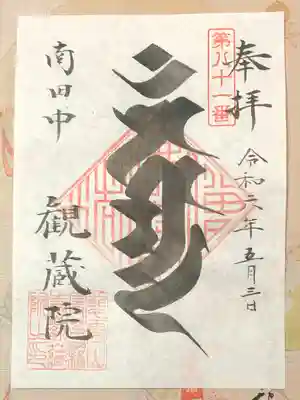 奉拝
第八十一番
令和六年五月三日
南田中
観蔵院